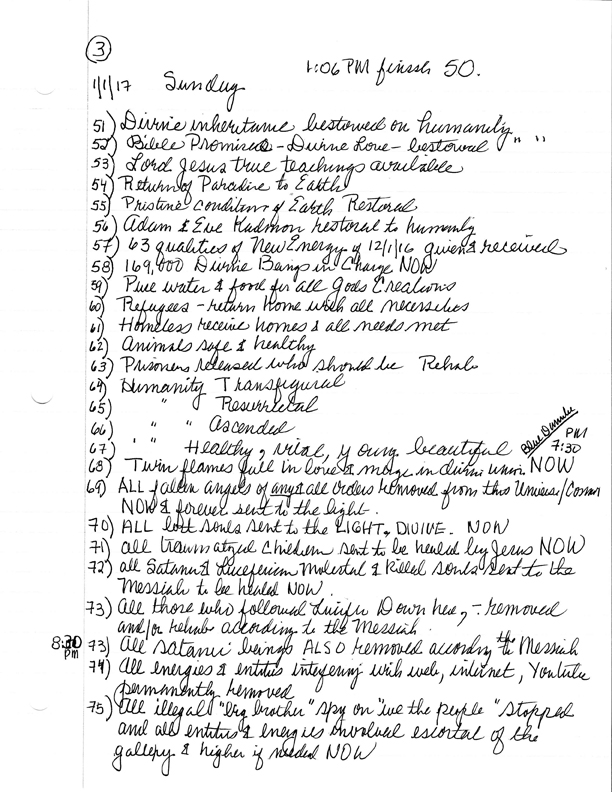 3
1:06 PM finish 50.
1/1/17 Sunday
51) Divine inheritance bestowed on humanity
52) Bible Promises - Divine Love - bestowed " "
53) Lord Jesus true teachings available
54) Return of Paradise to Earth
55) Pristine Conditions of Earth Restored
56) Adam & Eve Kadmon restored to humanity
57) 63 qualities of New Energy of 12/1/16 given & received
58) 169,000 Divine Beings in Charge NOW
59) Pure water & food for all Gods Creations
60) Refugees - return Home with all necessities
61) Homeless receive homes & all needs met
62) Animals safe & healthy
63) Prisoners released who should be Rehab
64) Humanity Transfigured
65) " Resurrected
66) " " Ascended
67) " " Healthy, vital, young beautiful
Blue Danube PM 7:30
68) Twin flames full in love & merge in divine union NOW
69) ALL fallen angels of any & all orders removed from this Universe/Cosmos
NOW & forever sent to the light.
70) ALL lost souls sent to the LIGHT, DIVINE. NOW
71) all traumatized Children sent to be healed by Jesus NOW
72) all Satanic & Luceferian Molested & killed souls sent to the
Messiah to be healed NOW.
73) All those who followed Lucifer Down here, - removed
and/or rehab according to the Messiah.
8:30 pm
73) All satanic beings ALSO removed according to the Messiah
74) All energies & entities interfering with web, internet, Youtube
permanently removed
75) All illegal "big brother" spy on "we the people" stopped
and all entities & energies involved escorted of the
gallery & higher if needed NOW